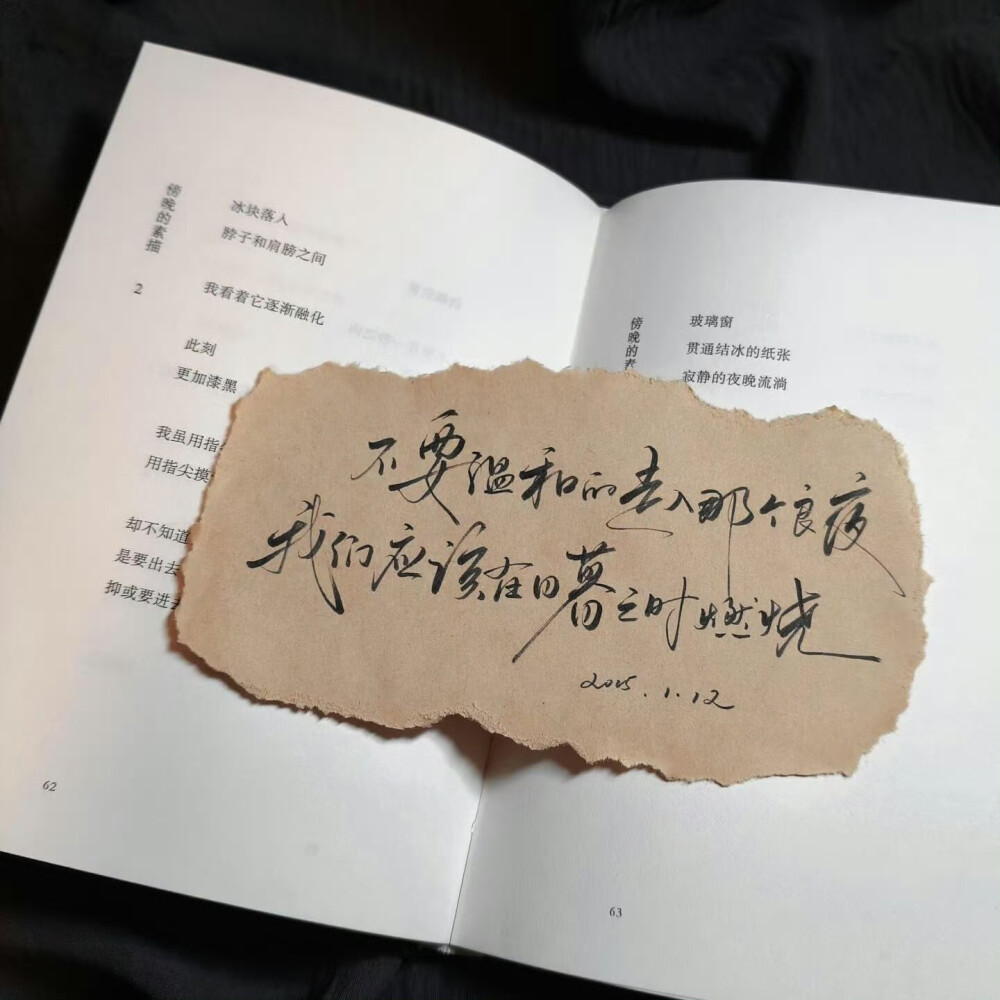 傍晚的素描
2
冰块落入
脖子和肩膀之间
我看着它逐渐融化
此刻
更加漆黑
我虽用指
用指尖摸
却不知道
是要出去
抑或要进去
62
傍晚的素
玻璃窗
贯通结冰的纸张
寂静的夜晚流淌
不要温和的走入那个良夜
我们应该在日暮之时燃烧
2025.1.12
63